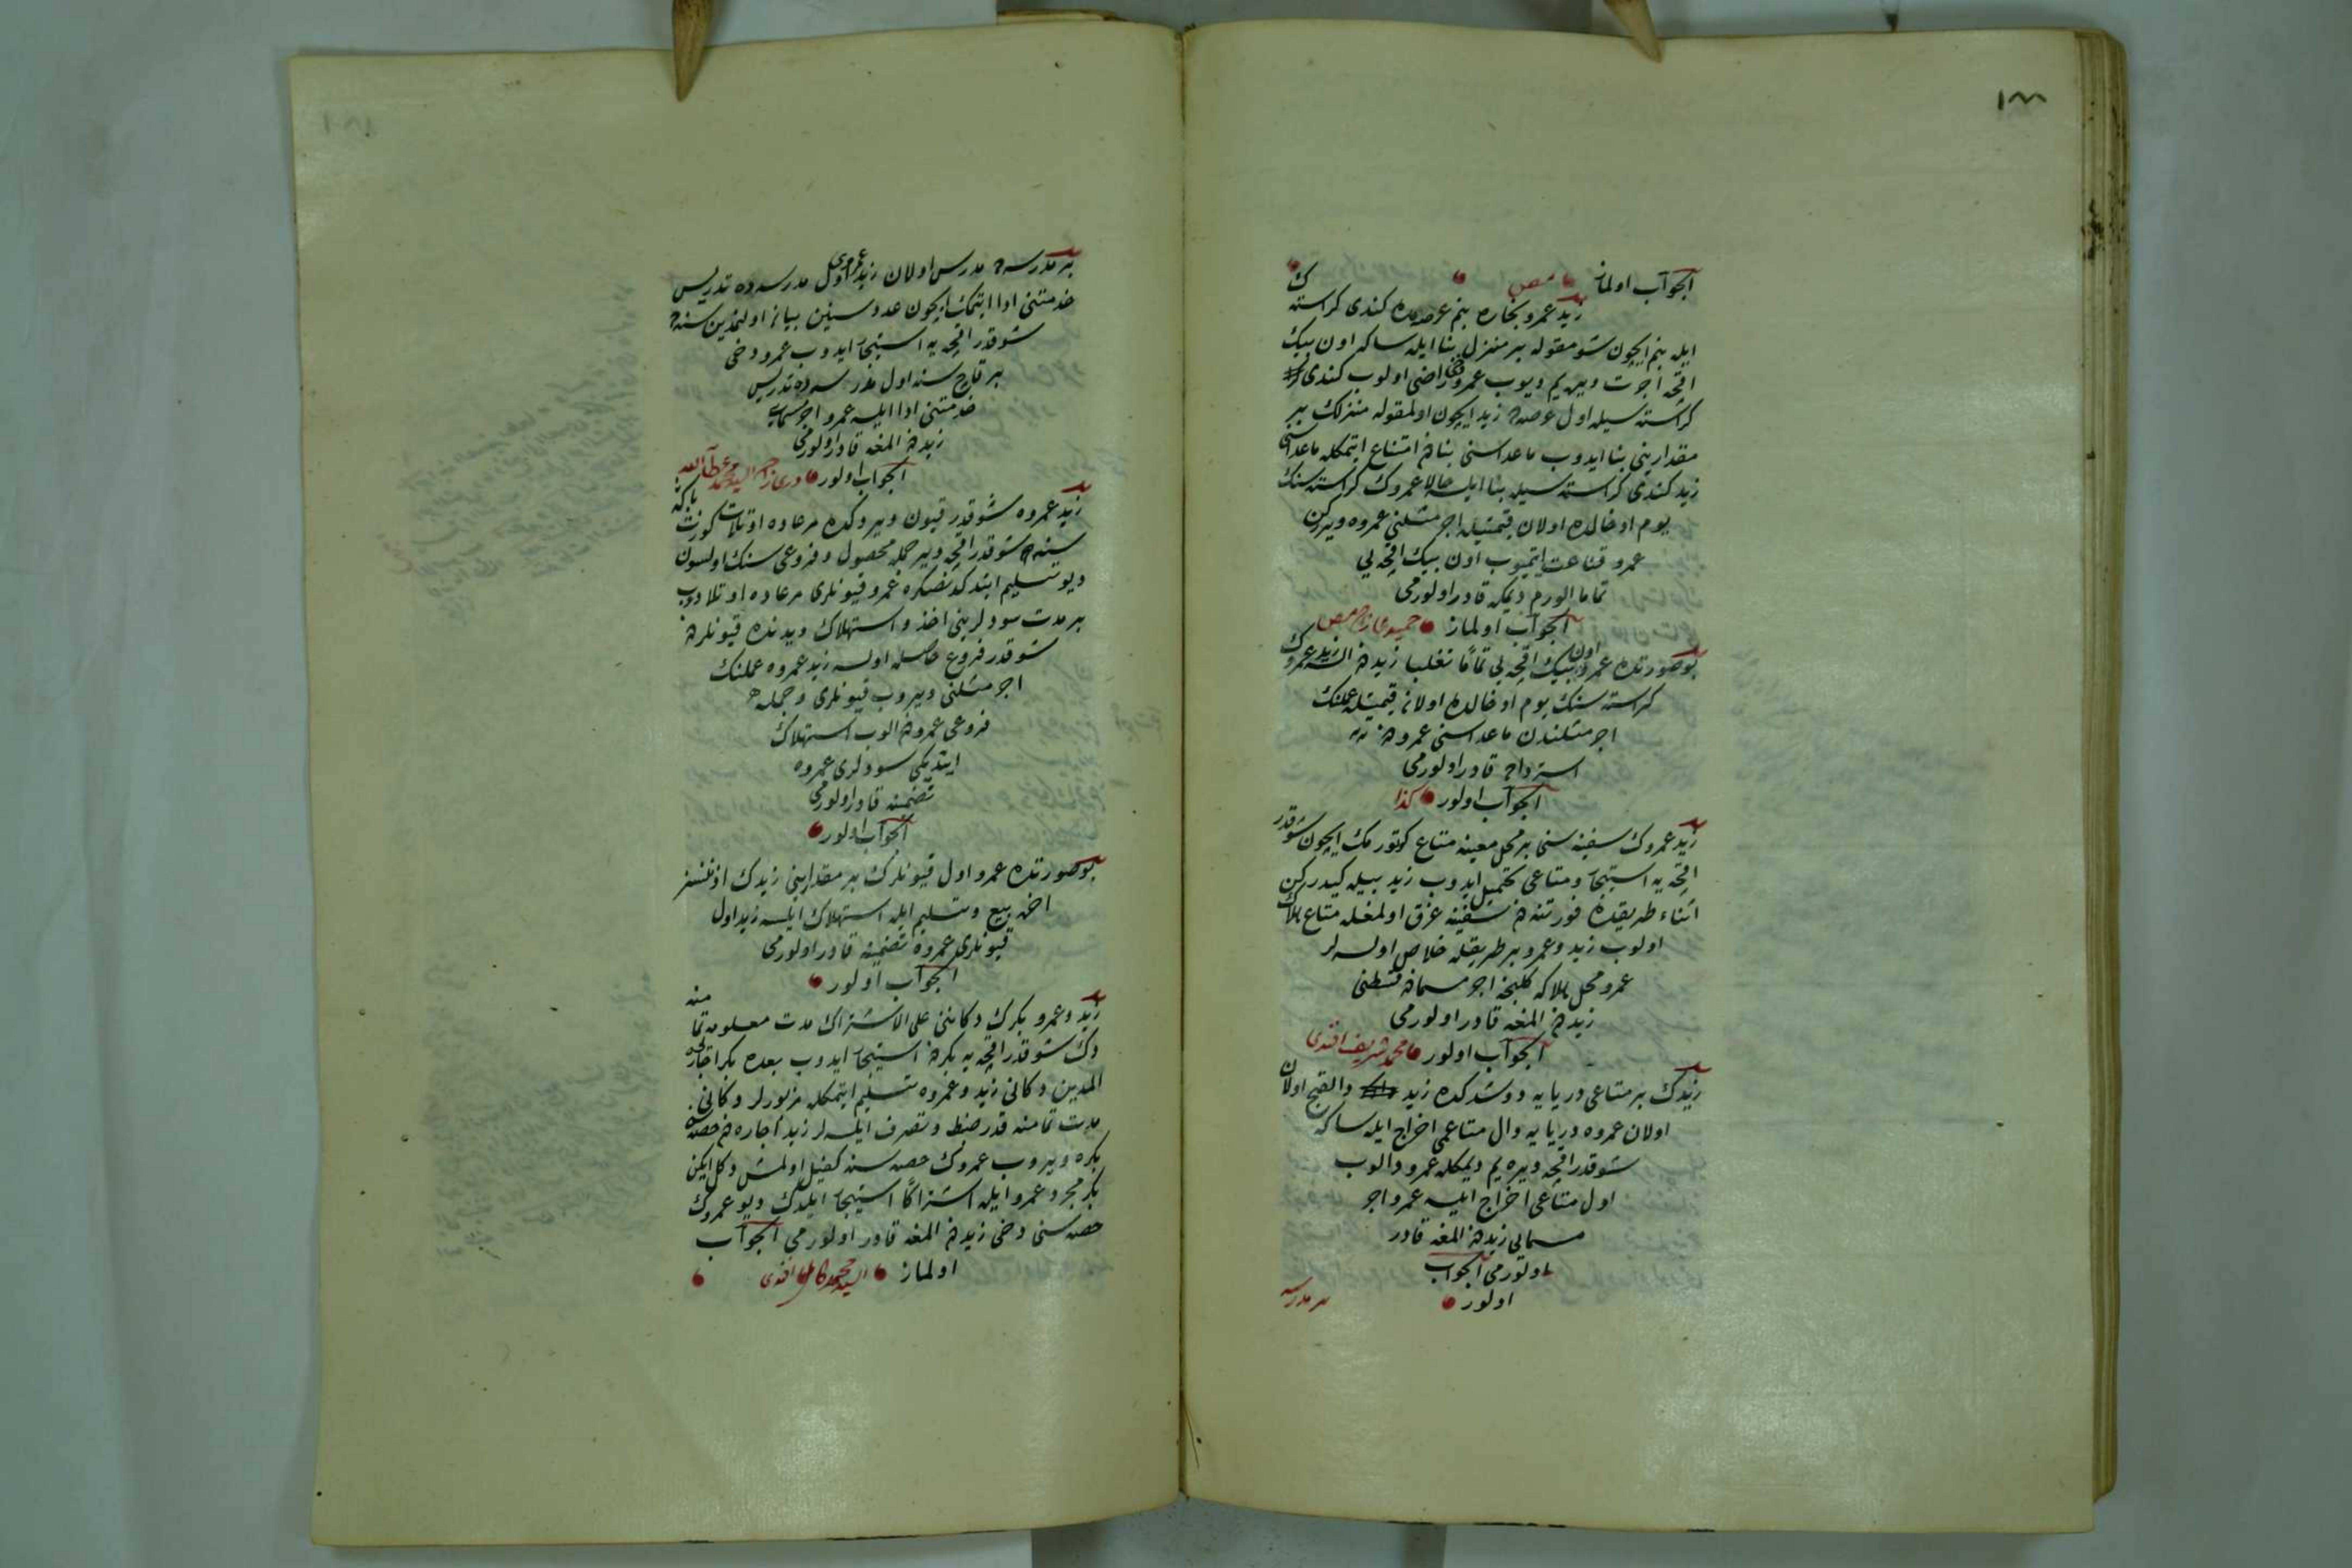 ١٨٨
الجواب اولماز
زيد عمرو نجاره بنم عرصه مده كندى كراسته ك
ايله بنم ايچون شو مقوله بر منزل بنا ايله سكا اون بيك
اقچه اجرت ويره يم ديوب عمرو دخى راضى اولوب كندى
كراسته سيله اول عرصه ده زيد ايچون اولمقوله منزلك بر
مقدارينى بنا ايدوب ماعداسنى بنادن امتناع ايتمكله ماعداسنى
زيد كندى كراسته سيله بنا ايلسه حالا عمروك كراسته سنك
يوم ادخالده اولان قيمتيله اجر مثلنى عمروه ويرركن
عمرو قناعت ايتميوب اون بيك اقچه يى
تماما الورم ديمكه قادر اولورمى
الجواب اولماز
بو صورتده عمرو اون بيك اقچه يى تماما تغلبا زيددن السه زيد عمروك
كراسته سنك يوم ادخالده اولان قيمتيله عملنك
اجر مثلندن ماعداسنى عمرودن
استرداده قادر اولورمى
الجواب اولور كذا
زيد عمروك سفينه سنى بر محل معينه متاع كوتورمك ايچون شو قدر
اقچه يه استيجار و متاعى تحميل ايدوب زيد بيله كيدركن
اثناء طريقده فورتنه دن سفينه غرق اولمغله متاع هلاك
اولوب زيد و عمرو بر طريقله خلاص اولسه لر
عمرو محل هلاكه كلنجه اجر مسمادن قسطنى
زيددن المغه قادر اولورمى
الجواب اولور محمد شريف افندى
زيدك بر متاعى دريايه دوشدكده زيد اولان
اولان عمروه دريايه طال متاعمى اخراج ايله سكا
شو قدر اقچه ويره يم ديمكله عمرو طالوب
اول متاعى اخراج ايلسه عمرو اجر
مسمايى زيددن المغه قادر
اولورمى الجواب
اولور
بر مدرسه
بر مدرسه ده مدرس اولان زيد عمروى اول مدرسه ده تدريس
خدمتنى ادا ايتمك ايچون عدد سنين بيان اولنمدين سنه ده
شو قدر اقچه يه استيجار ايدوب عمرو دخى
بر قاچ سنه اول مدرسه ده تدريس
خدمتنى ادا ايلسه عمرو اجر مسمايى
زيددن المغه قادر اولورمى
الجواب اولور
زيد عمروه شو قدر قيون ويروب كوزت بكا
سنه ده شو قدر اقچه وير جمله محصول و فروعى سنك اولسون
ديو تسليم ايتدكدنصكره عمرو قيونلرى مرعاده اوتلادوب
بر مدت سودلرينى اخذ و استهلاك ايدنده قيونلردن
شو قدر فروع حاصله اولسه زيد عمروه عملنك
اجر مثلنى ويروب قيونلرى و جمله
فروعى عمرودن الوب استهلاك
ايتديكى سودلرى عمروه
تضمينه قادر اولورمى
الجواب اولور
بو صورتده عمرو اول قيونلرك بر مقدارينى زيدك اذنسز
اخره بيع و تسليم ايله استهلاك ايلسه زيد اول
قيونلرى عمروه تضمينه قادر اولورمى
الجواب اولور
زيد و عمرو بكرك دكاننى على الاشتراك مدت معلومه تمامنه
دك شو قدر اقچه يه بكردن استيجار ايدوب بعده بكر
المدين دكانى زيد و عمروه تسليم ايتمكله مزبورلر دكانى
مدت تمامنه قدر ضبط و تصرف ايلسه لر زيد اجاره دن حصه سنى
بكره ويروب عمروك حصه سنه كفيل اولمش دكل ايكن
بكر مجرد عمرو ايله اشتراكا استيجار ايلدك ديو عمروك
حصه سنى دخى زيددن المغه قادر اولورمى الجواب
اولماز السيد محمد كامل افندى